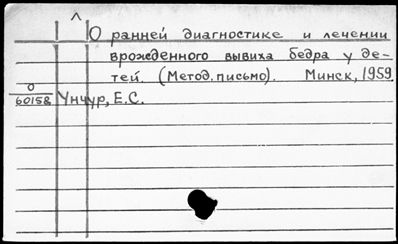 О ранней диагностике и лечении
врожденного вывиха бедра у де-
тей. (Метод. письмо). Минск, 1959.
О
60158 Унчур, Е.С.